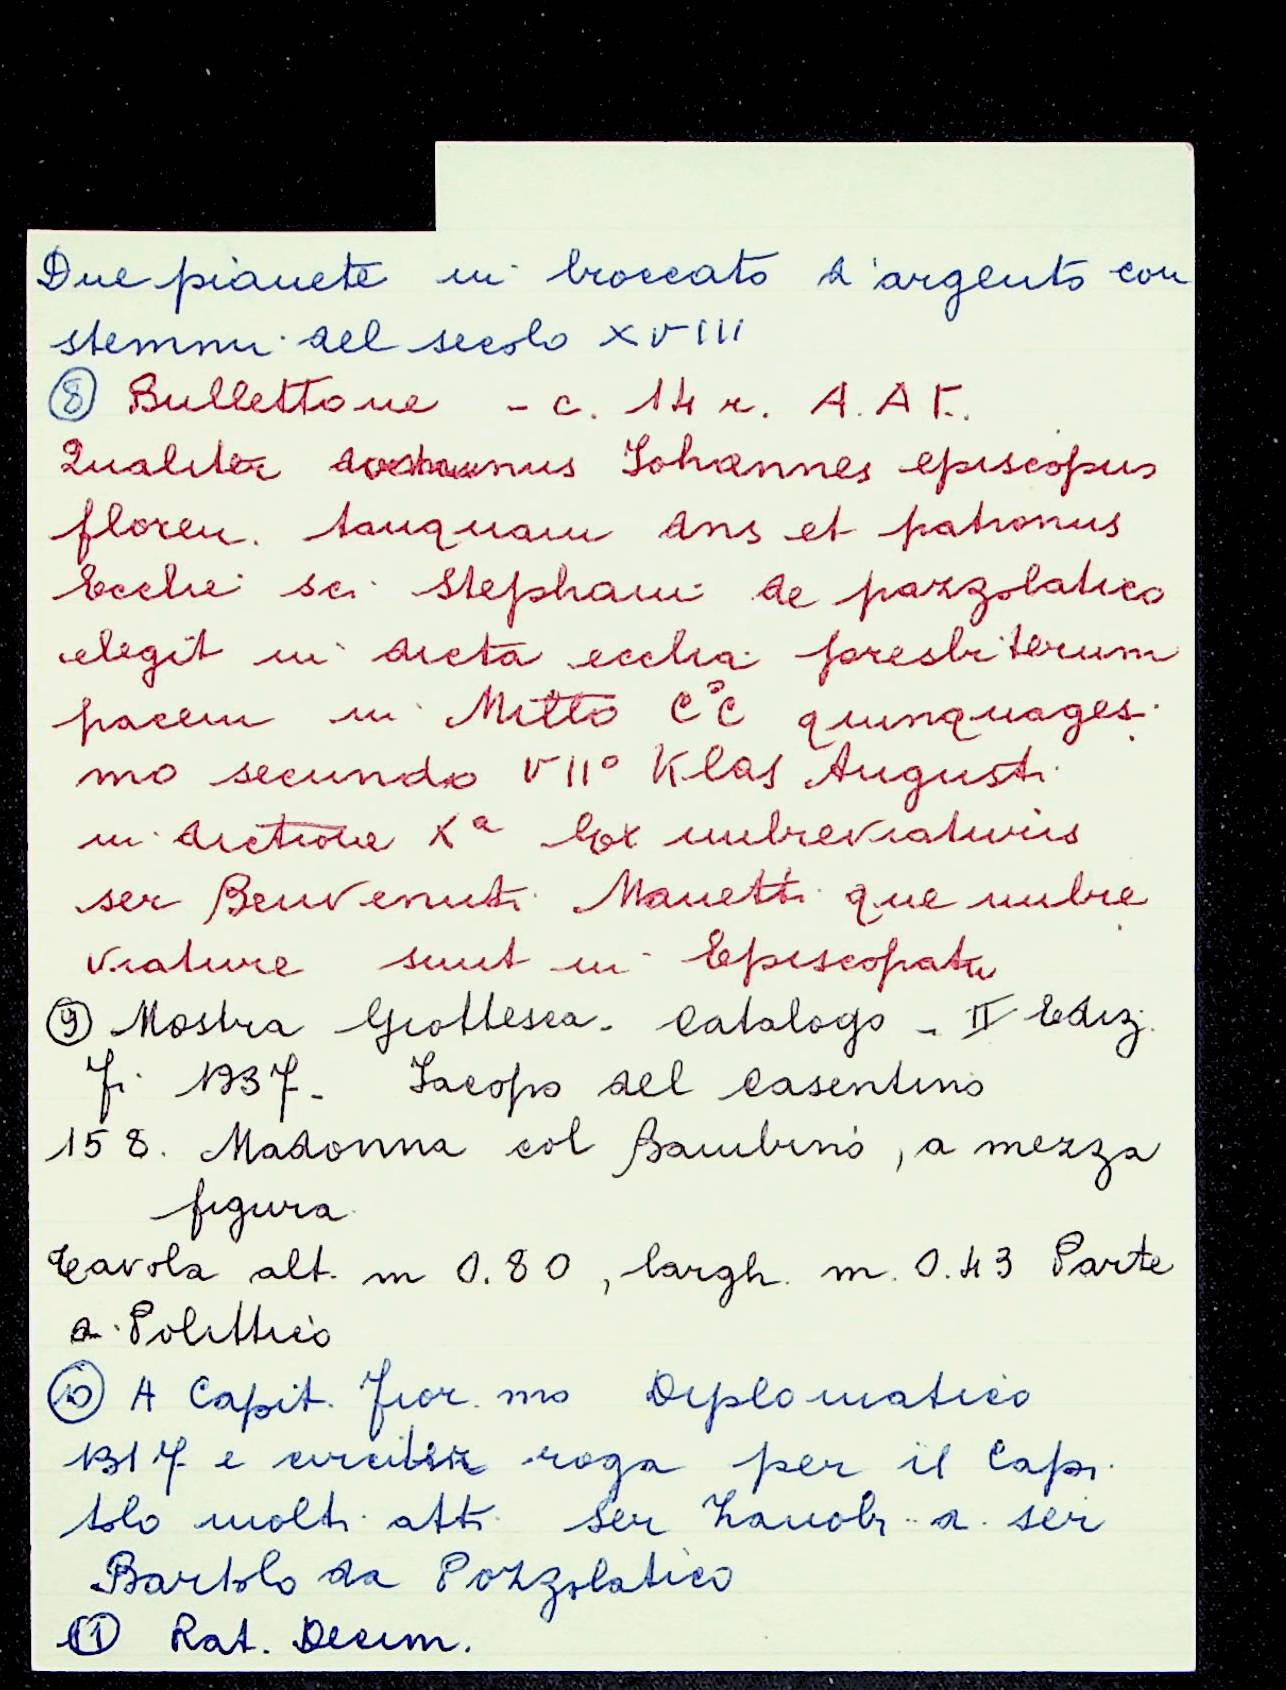 Due pianete in broccato d'argento con
stemmi del secolo XVIII
⑧ Bullettone - c. 14 r. A.A F.
Qualiter dominus Johannes episcopus
floren. tanquam dns et patronus
Ecclie sci Stephani de pazzolatico
elegit in dicta ecclia presbiterum
pacem in Mitto C°C quinquages
mo secundo VII° Klas Augusti
in dictione Xa Ex imbreviaturis
ser Benvenuti Manetti que imbre
viature sunt in Episcopatu
⑨ Mostra Giottesca - Catalogo - II Ediz.
Fi 1937 - Jacopo del Casentino
158. Madonna col Bambino, a mezza
figura
Tavola alt. m 0.80, largh. m. 0.43 Parte
di Polittico
⑩ A Capit. Fior. mo Diplomatico
1317 e circiter roga per il Capi
tolo molti atti Ser Zanobi di ser
Bartolo da Pozzolatico
⑪ Rat. Decim.